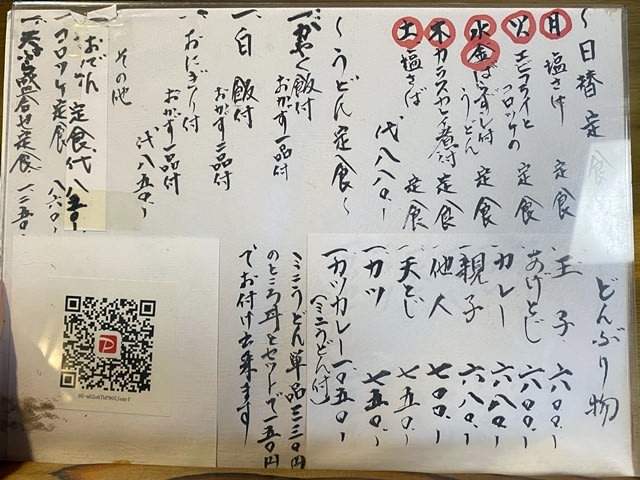 〜日替定食〜
月 塩さけ 定食
火 エビフライとコロッケの 定食
水金 ばらずし付うどん 定食
木 カラスカレイ煮付 定食
土 塩さば 定食
代八八〇.-
〜うどん定食〜
一、かやく飯付
おかず一品付
一、白飯付
おかず二品付
一、おにぎり付
おかず一品付
代八五〇.-
その他
おでん定食代八五〇.-
一、コロッケ定食 八六〇.-
一、天ぷら盛合せ定食 一、二五〇.-
どんぶり物
一、玉子 六〇〇.-
一、あげとじ 六〇〇.-
一、カレー 六八〇.-
一、親子 六八〇.-
一、他人 七〇〇.-
一、天とじ 七五〇.-
一、カツ 七五〇.-
一、カツカレー 一、〇五〇.-
(ミニうどん付)
ミニうどん単品三三〇円
のところ丼とセットで一五〇円
でお付け出来ます